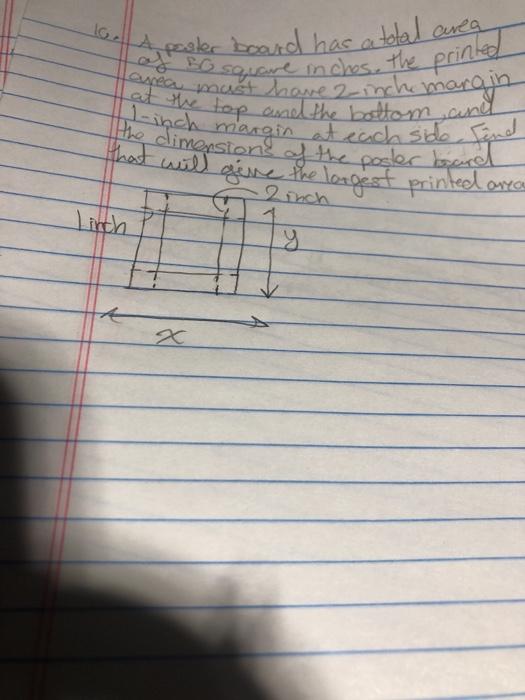 10. A poster board has a total area
of 50 square inches. the printed
area must have 2-inch margin
at the top and the bottom and
1-inch margin at each side find
the dimensions of the poster board
that will give the largest printed area
2 inch
1 inch
y
x